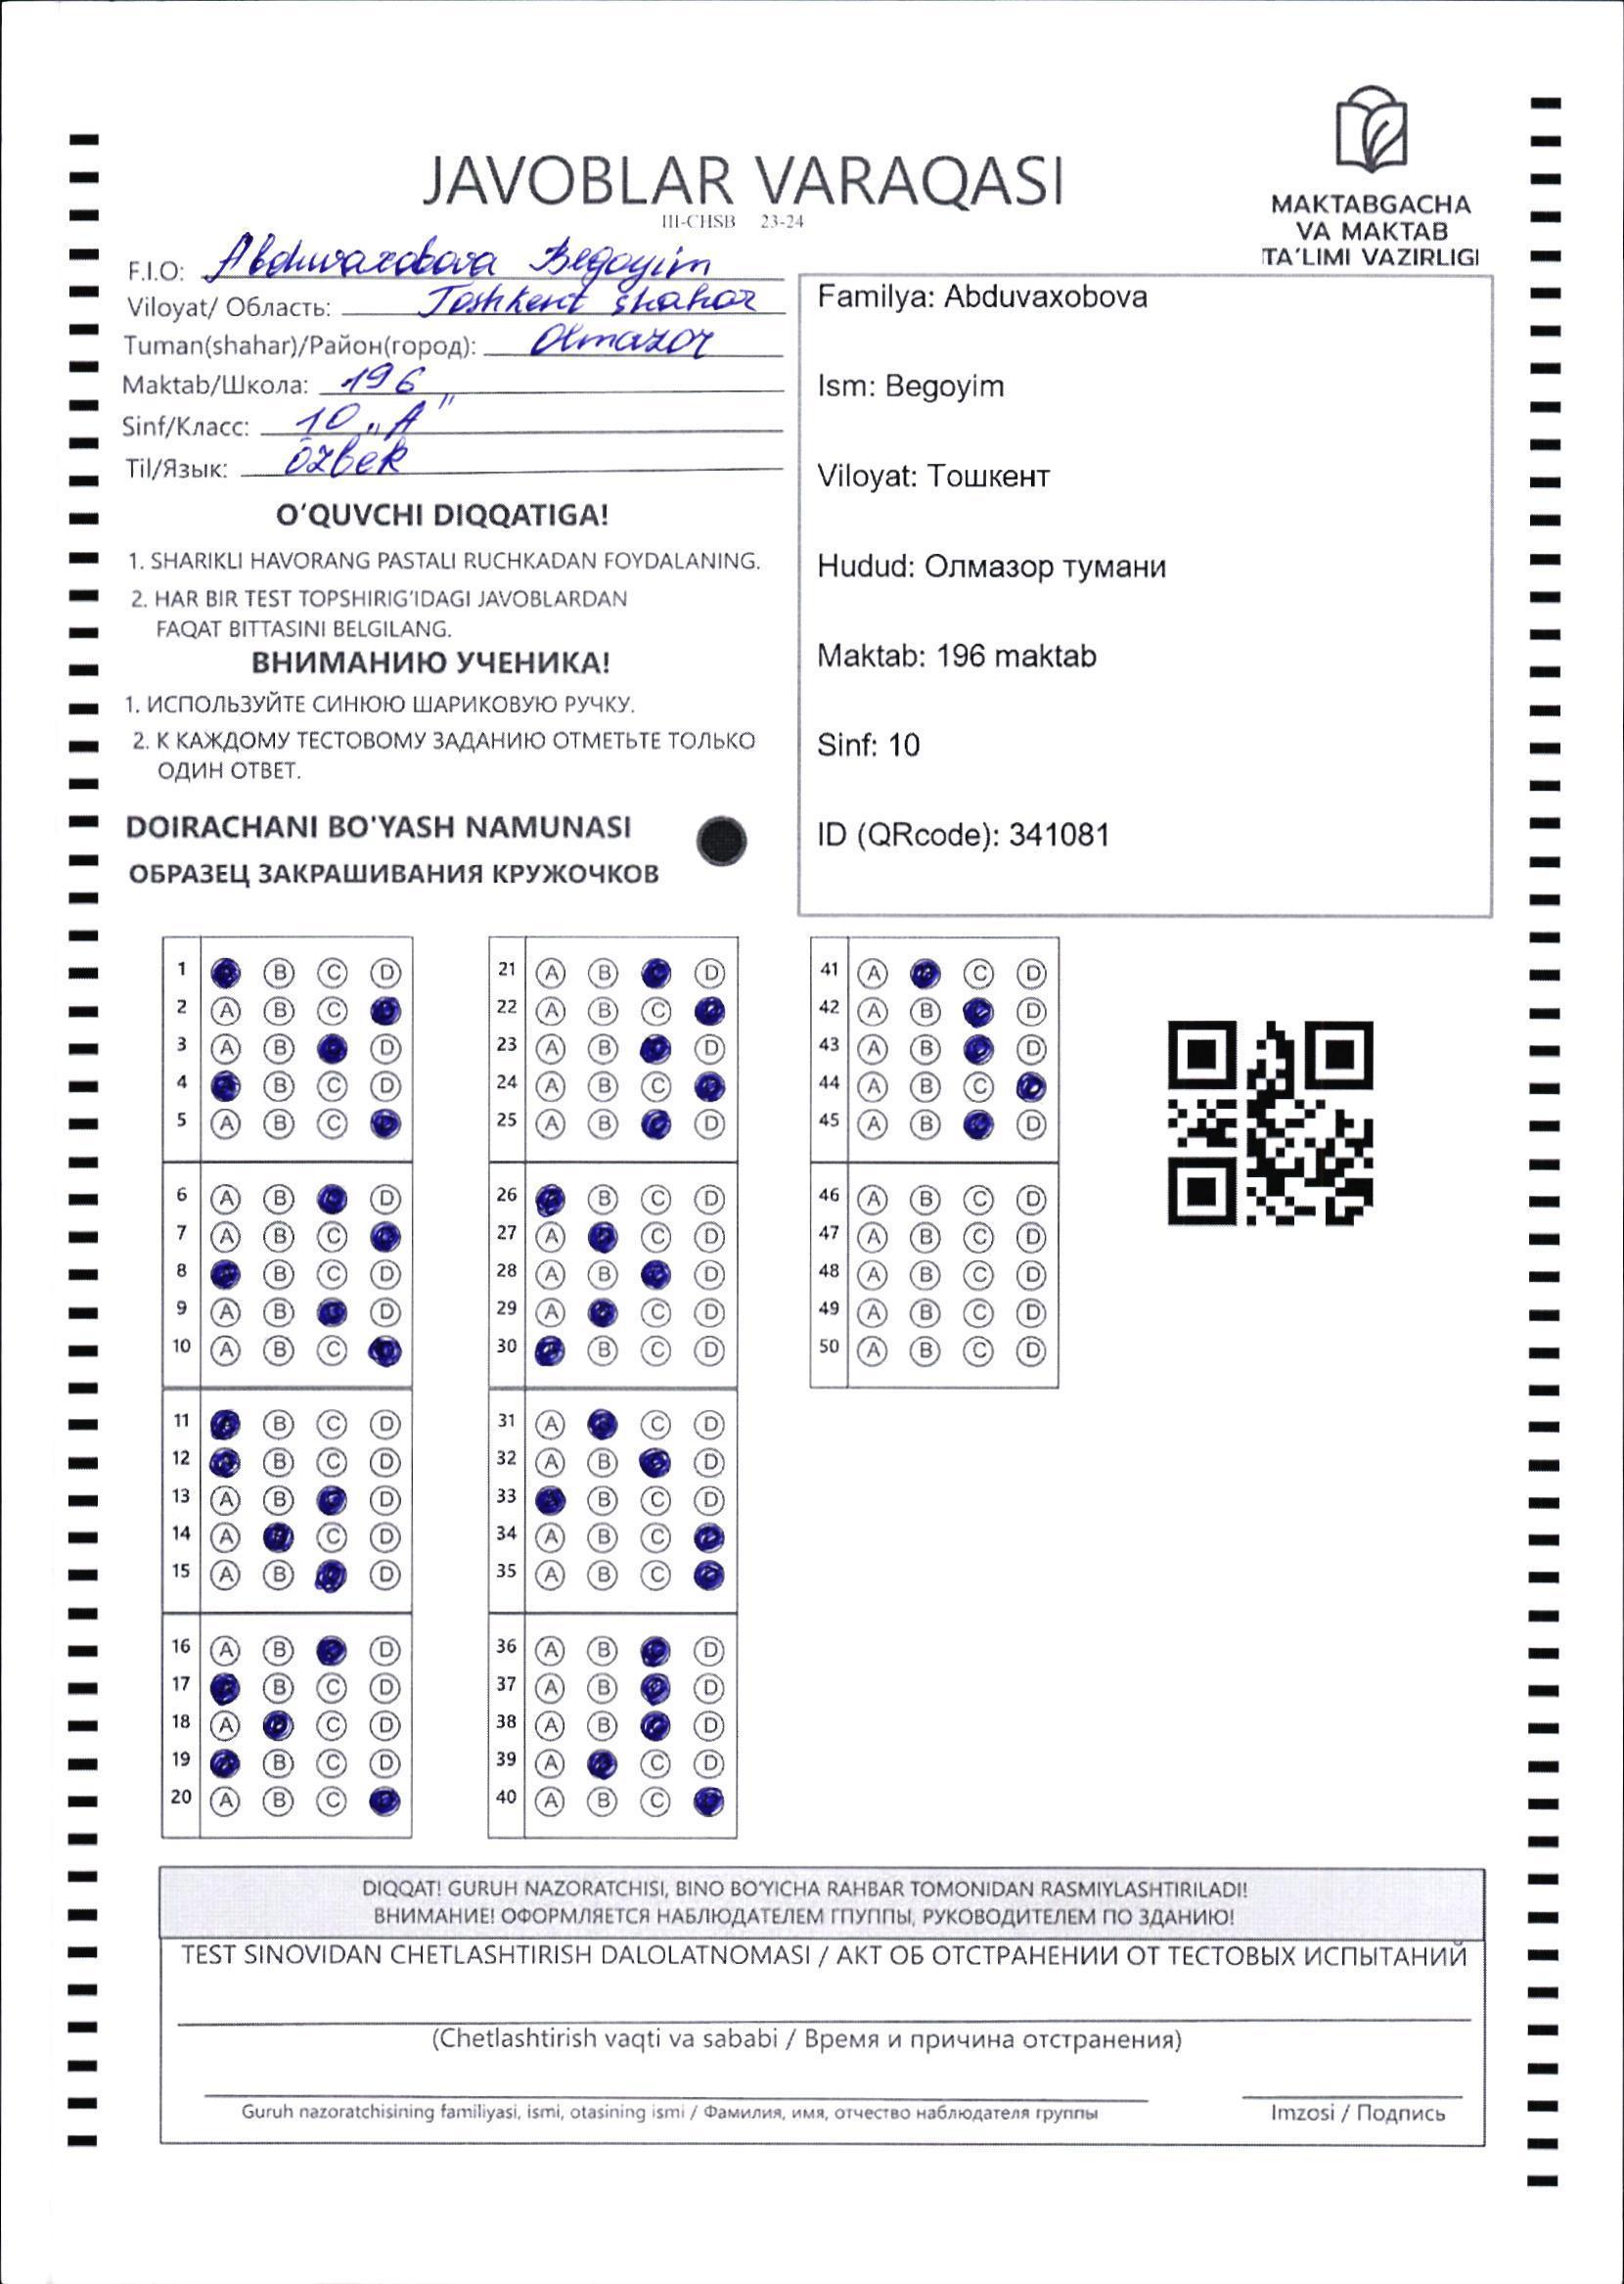 JAVOBLAR VARAQASI
III-CHSB 23-24
MAKTABGACHA
VA MAKTAB
TA'LIMI VAZIRLIGI
F.I.O: Abduvaxobova Begoyim
Viloyat/ Область: Toshkent shahar
Tuman(shahar)/Район(город): Olmazor
Maktab/Школа: 196
Sinf/Класс: 10 „A"
Til/Язык: özbek
O'QUVCHI DIQQATIGA!
1. SHARIKLI HAVORANG PASTALI RUCHKADAN FOYDALANING.
2. HAR BIR TEST TOPSHIRIG'IDAGI JAVOBLARDAN
FAQAT BITTASINI BELGILANG.
ВНИМАНИЮ УЧЕНИКА!
1. ИСПОЛЬЗУЙТЕ СИНЮЮ ШАРИКОВУЮ РУЧКУ.
2. К КАЖДОМУ ТЕСТОВОМУ ЗАДАНИЮ ОТМЕТЬТЕ ТОЛЬКО
ОДИН ОТВЕТ.
DOIRACHANI BO'YASH NAMUNASI
ОБРАЗЕЦ ЗАКРАШИВАНИЯ КРУЖОЧКОВ
Familya: Abduvaxobova
Ism: Begoyim
Viloyat: Тошкент
Hudud: Олмазор тумани
Maktab: 196 maktab
Sinf: 10
ID (QRcode): 341081
1 B C D
2 A B C
3 A B D
4 B C D
5 A B C
6 A B D
7 A B C
8 B C D
9 A B D
10 A B C
11 B C D
12 B C D
13 A B D
14 A C D
15 A B D
16 A B D
17 B C D
18 A C D
19 B C D
20 A B C
21 A B D
22 A B C
23 A B D
24 A B C
25 A B D
26 B C D
27 A C D
28 A B D
29 A C D
30 B C D
31 A C D
32 A B D
33 B C D
34 A B C
35 A B C
36 A B D
37 A B D
38 A B D
39 A C D
40 A B C
41 A C D
42 A B D
43 A B D
44 A B C
45 A B D
46 A B C D
47 A B C D
48 A B C D
49 A B C D
50 A B C D
DIQQAT! GURUH NAZORATCHISI, BINO BO'YICHA RAHBAR TOMONIDAN RASMIYLASHTIRILADI!
ВНИМАНИЕ! ОФОРМЛЯЕТСЯ НАБЛЮДАТЕЛЕМ ГПУППЫ, РУКОВОДИТЕЛЕМ ПО ЗДАНИЮ!
TEST SINOVIDAN CHETLASHTIRISH DALOLATNOMASI / АКТ ОБ ОТСТРАНЕНИИ ОТ ТЕСТОВЫХ ИСПЫТАНИЙ
(Chetlashtirish vaqti va sababi / Время и причина отстранения)
Guruh nazoratchisining familiyasi, ismi, otasining ismi / Фамилия, имя, отчество наблюдателя группы
Imzosi / Подпись